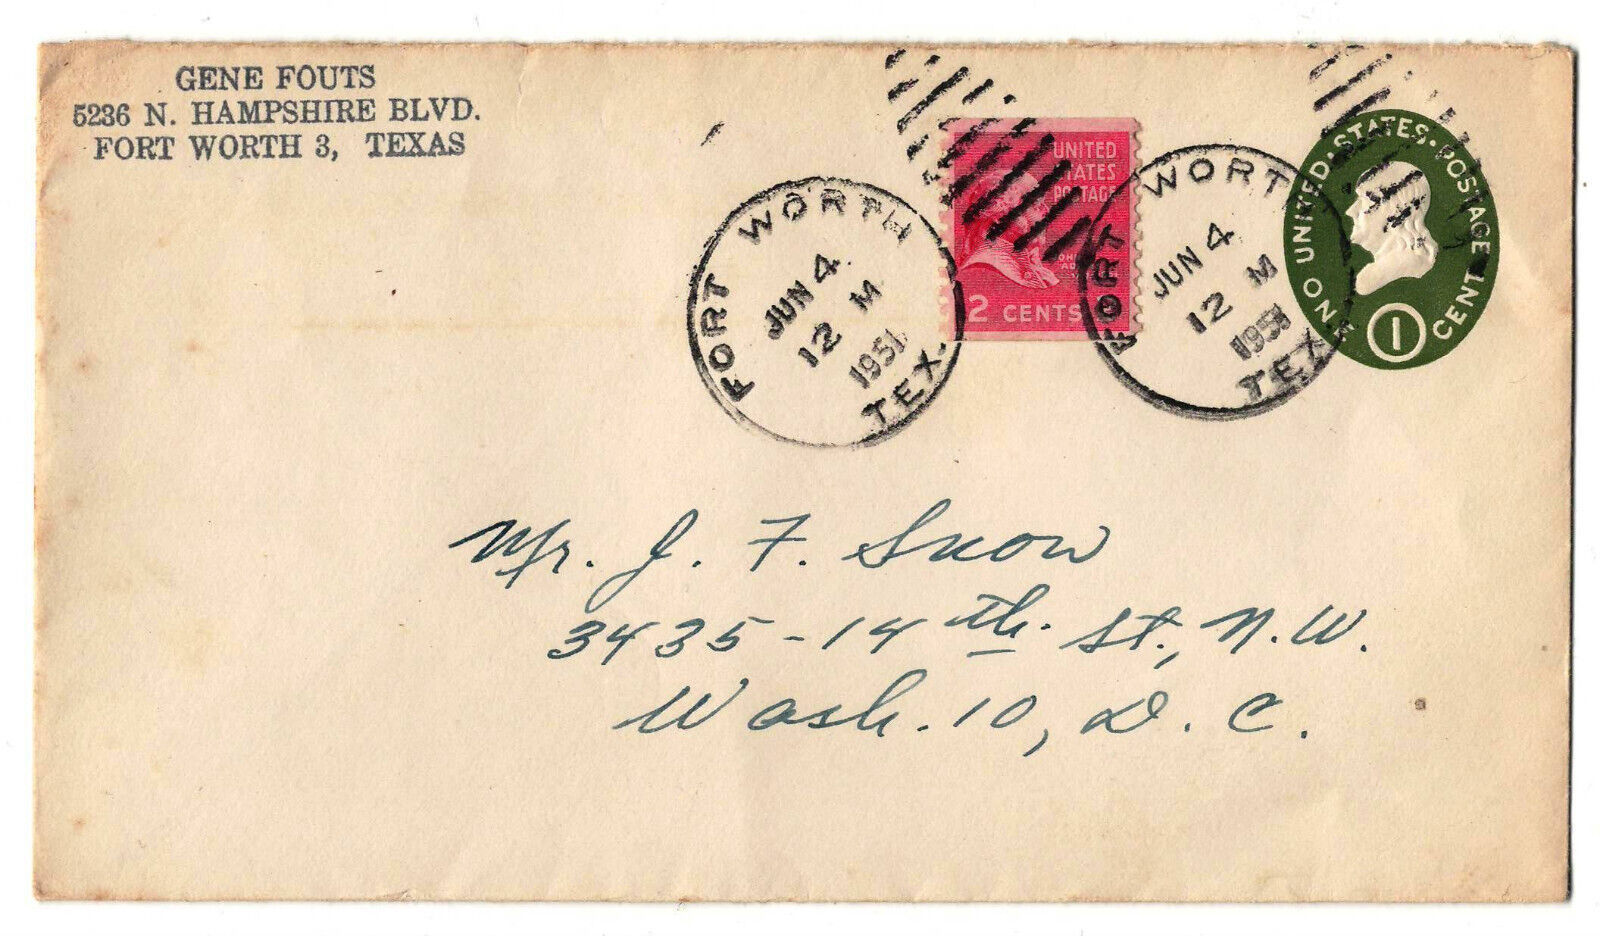 GENE FOUTS
5236 N. HAMPSHIRE BLVD.
FORT WORTH 3, TEXAS
FORT WORTH
JUN 4
12 M
1951
TEX.
UNITED
STATES
POSTAGE
2 CENTS
FORT WORT
JUN 4
12 M
1951
TEX
UNITED·STATES·POSTAGE
ONE 1 CENT
Mr. J. F. Snow
3435-14th. St., N.W.
Wash. 10, D. C.